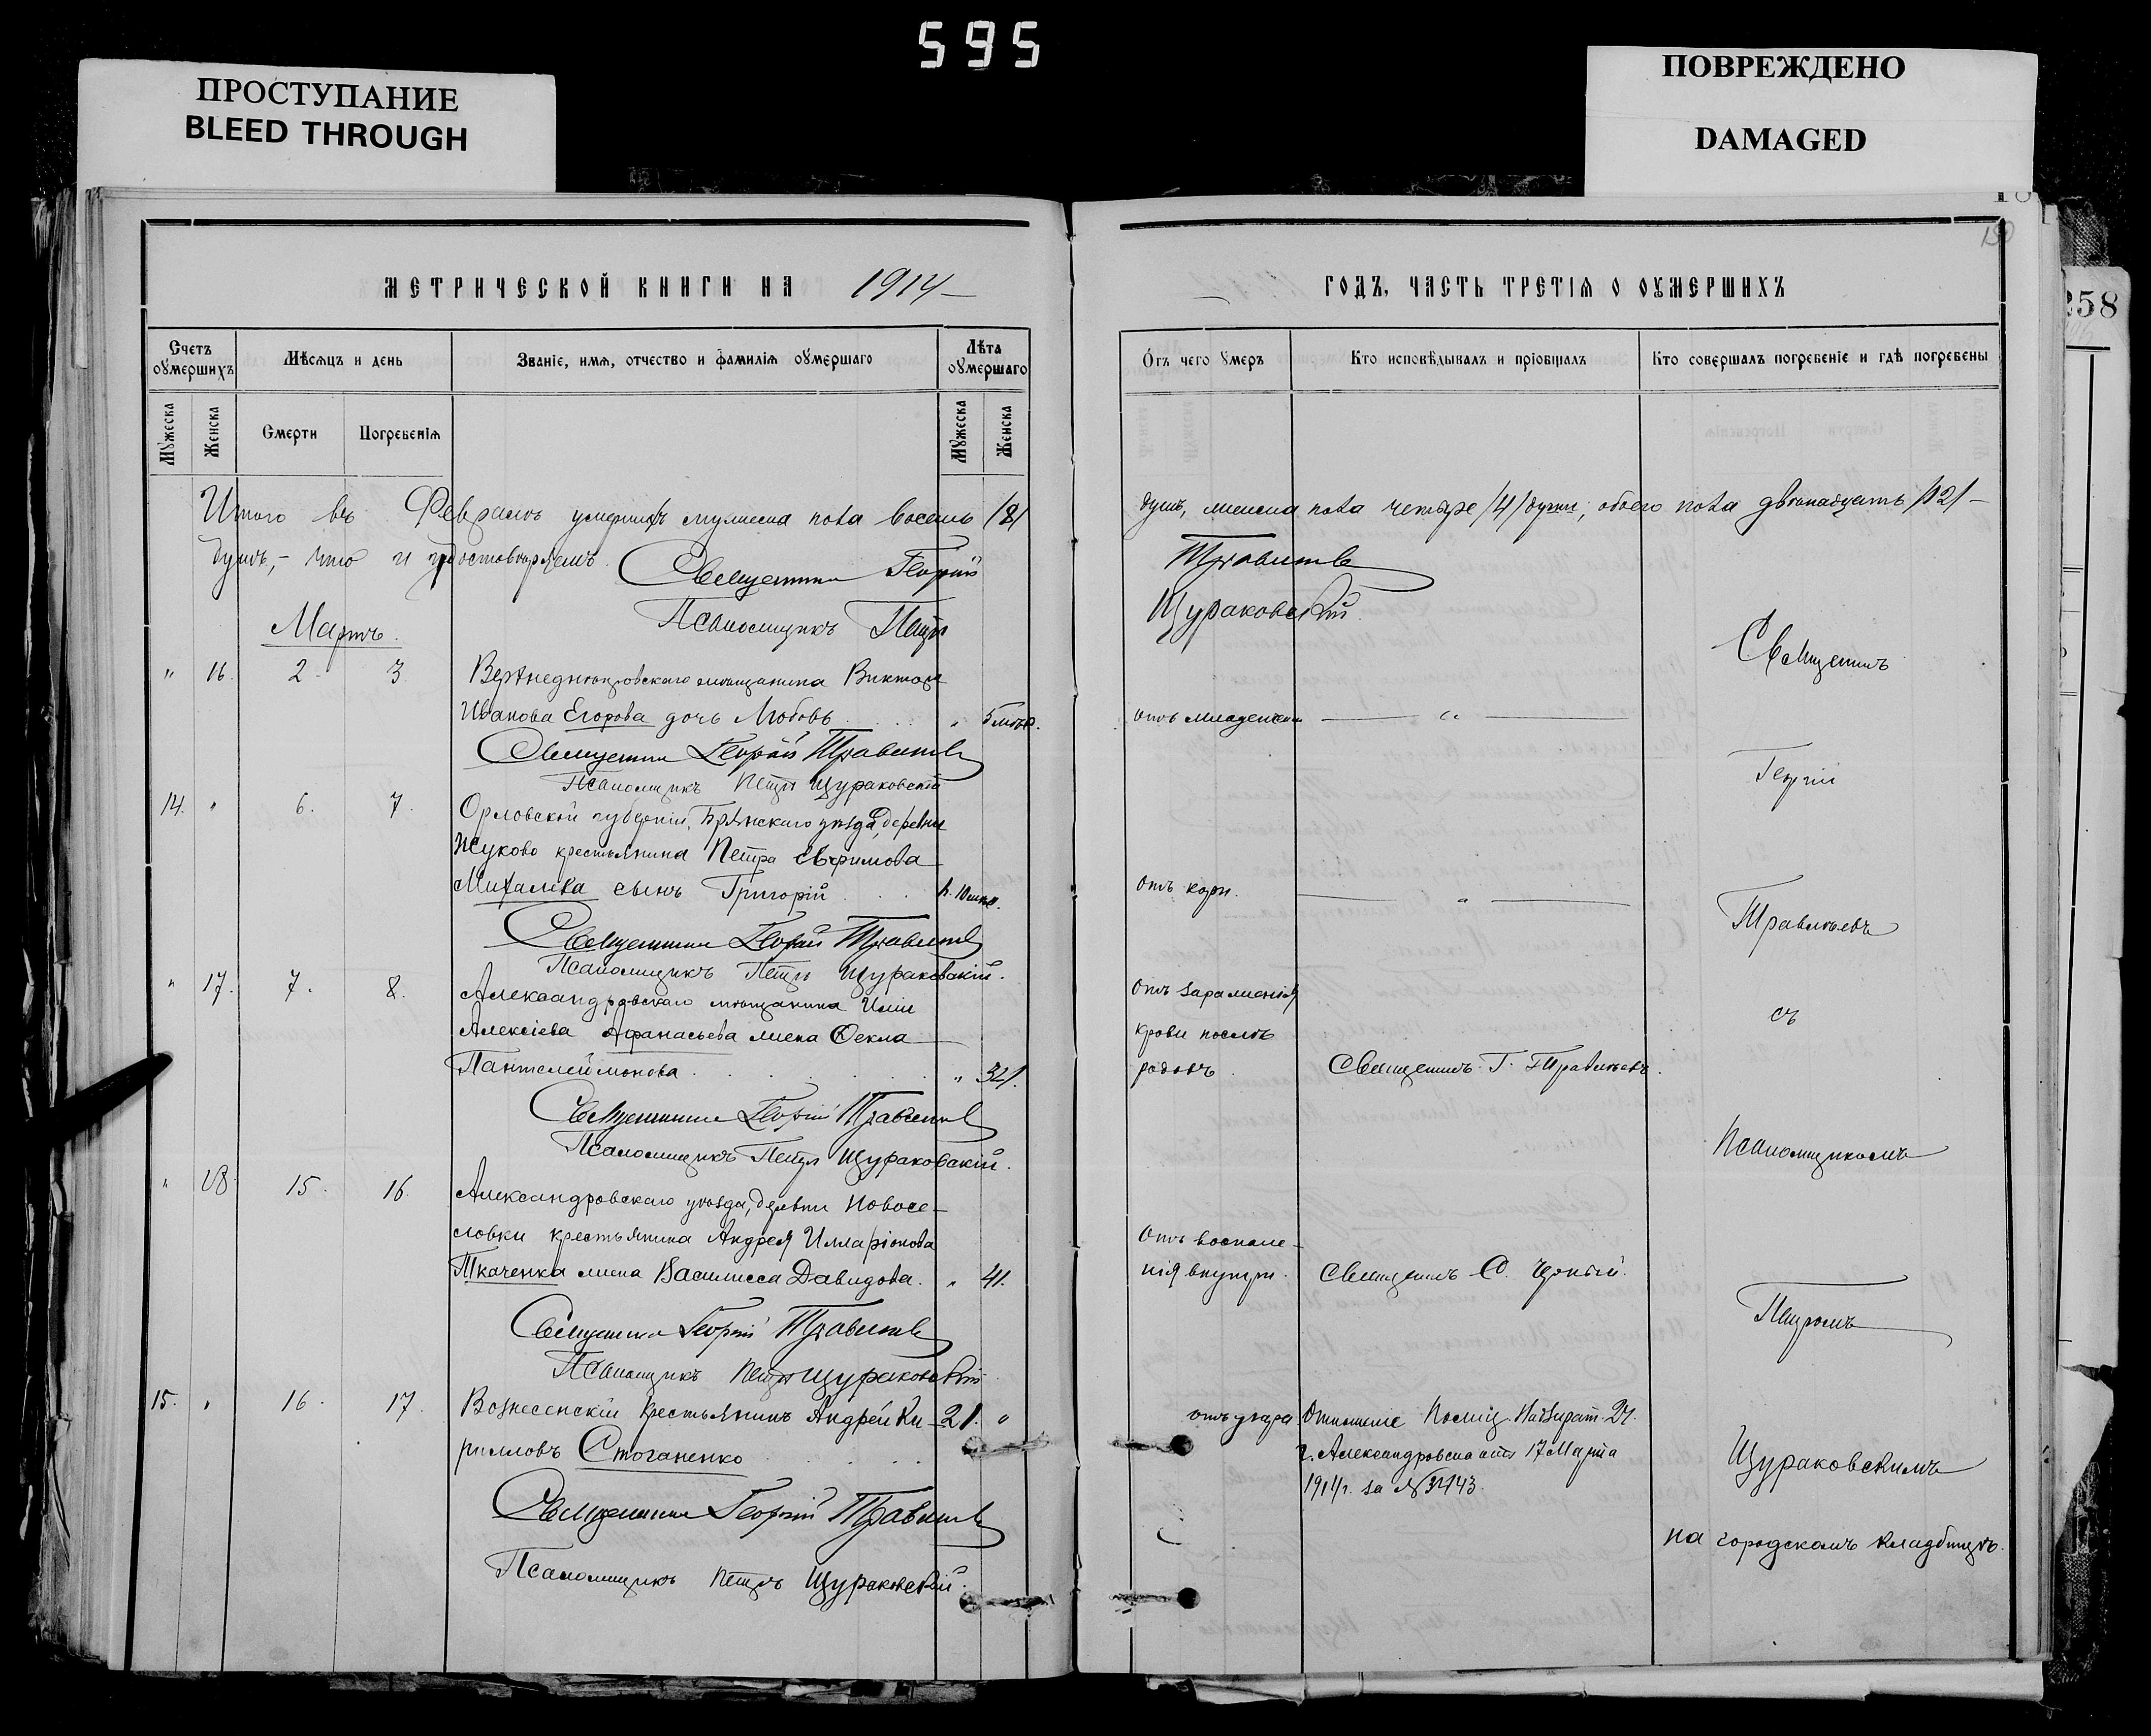 595
ПРОСТУПАНИЕ
BLEED THROUGH
ПОВРЕЖДЕНО
DAMAGED
258
МЕТРИЧЕСКОЙ КНИГИ НА 1914
Счетъ оумершихъ
Мѣсяцъ и день
Званіе, имя, отчество и фамилія оумершаго
Лѣта оумершаго
Мужеска
Женска
Смерти
Погребенія
Мужеска
Женска
Итого въ Февралѣ умершихъ мужеска пола восемь /8/
душъ, - что и удостовѣряемъ. Священникъ Георгій
Псаломщикъ Петръ
Мартъ.
" 16. 2. 3. Верхнеднѣпровскаго мѣщанина Виктора
Иванова Егорова дочь Любовь . . . " 5 мѣс.
Священникъ Георгій Правилевъ
Псаломщикъ Петръ Щураковскій
14. " 6. 7. Орловской губерніи, Брянскаго уѣзда, деревни
Жуково крестьянина Петра Ефимова
Михалика сынъ Григорій
Священникъ Георгій Правилевъ
Псаломщикъ Петръ Щураковскій.
" 17. 7. 8. Александровскаго мѣщанина Иліи
Алексіева Афанасьева жена Ѳекла
Пантелеймонова . . . " 32.
Священникъ Георгій Правилевъ
Псаломщикъ Петръ Щураковскій.
" 18. 15. 16. Александровскаго уѣзда, деревни Новосе-
ловки крестьянина Андрея Илларіонова
Ткаченка жена Василисса Давидова. " 41.
Священникъ Георгій Правилевъ
Псаломщикъ Петръ Щураковскій
15. " 16. 17. Вознесенскій крестьянинъ Андрей Ки- 21. "
рилловъ Стоганенко . . .
Священникъ Георгій Правилевъ
Псаломщикъ Петръ Щураковскій.
ГОДЪ, ЧАСТЬ ТРЕТІЯ О ОУМЕРШИХЪ
Отъ чего умеръ
Кто исповѣдывалъ и пріобщалъ
Кто совершалъ погребеніе и гдѣ погребены
душъ, женска пола четыре /4/ души; обоего пола двѣнадцать /12/ -
Правилевъ
Щураковскій.
Священникъ
отъ младенческ. "
Георгій
отъ кори. "
Правилевъ
Отъ зараженія
крови послѣ
родовъ. Священникъ Г. Правилевъ.
съ
Псаломщикомъ
Отъ воспале-
нія внутри. Священникъ Ѳ. Черный.
Петромъ
отъ удара Отношеніе Полиц. Надзират. 2 ч.
г. Александровска отъ 17 Марта
1914 г. за № 3443.
Щураковскимъ
на городскомъ кладбищѣ.